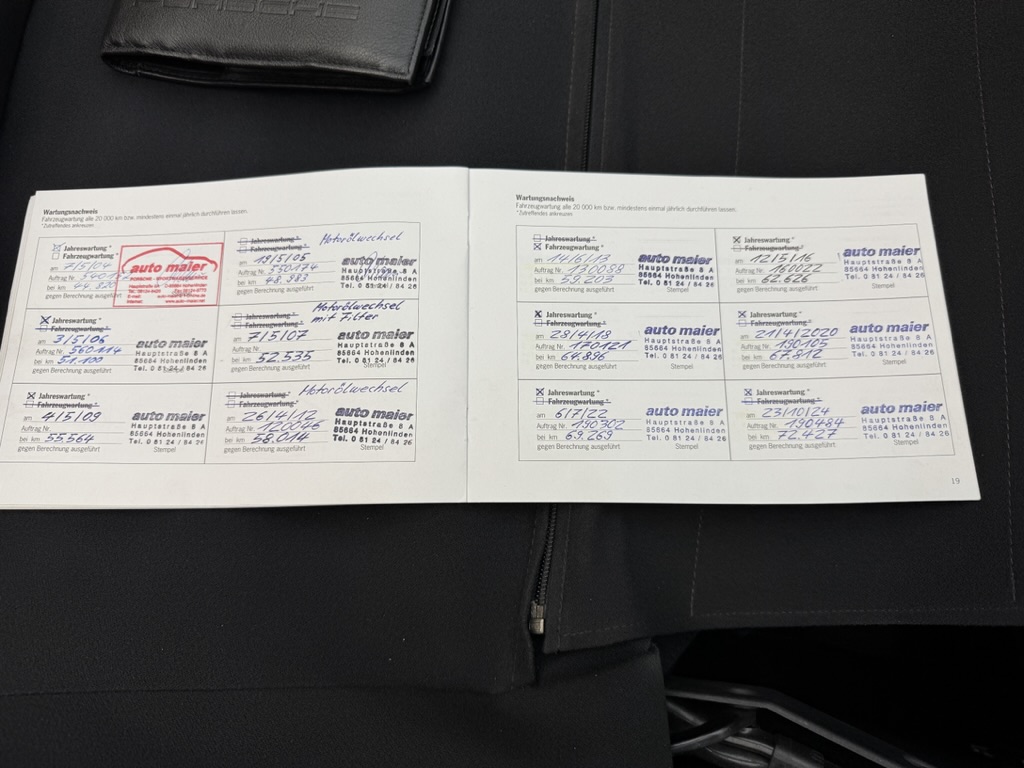 PORSCHE
Wartungsnachweis
Fahrzeugwartung alle 20 000 km bzw. mindestens einmal jährlich durchführen lassen.
*Zutreffendes ankreuzen
Jahreswartung *
Fahrzeugwartung *
am 7/5/04
Auftrag Nr.
bei km 44.820
gegen Berechnung ausgeführt
auto maier
Jahreswartung *
Fahrzeugwartung *
Motorölwechsel
am 18/5/05
Auftrag Nr. 550174
bei km 48.983
gegen Berechnung ausgeführt
auto maier
Hauptstraße 8 A
85664 Hohenlinden
Tel. 0 81 24 / 84 26
Jahreswartung *
Fahrzeugwartung *
am 3/5/06
Auftrag Nr. 560114
bei km 51.100
gegen Berechnung ausgeführt
auto maier
Hauptstraße 8 A
85664 Hohenlinden
Tel. 0 81 24 / 84 26
Jahreswartung *
Fahrzeugwartung *
Motorölwechsel
mit Filter
am 7/5/07
Auftrag Nr.
bei km 52.535
gegen Berechnung ausgeführt
auto maier
Hauptstraße 8 A
85664 Hohenlinden
Tel. 0 81 24 / 84 26
Stempel
Jahreswartung *
Fahrzeugwartung *
am 4/5/09
Auftrag Nr.
bei km 55.564
gegen Berechnung ausgeführt
auto maier
Hauptstraße 8 A
85664 Hohenlinden
Tel. 0 81 24 / 84 26
Stempel
Jahreswartung *
Fahrzeugwartung *
Motorölwechsel
am 26/4/12
Auftrag Nr. 120046
bei km 58.014
gegen Berechnung ausgeführt
auto maier
Hauptstraße 8 A
85664 Hohenlinden
Tel. 0 81 24 / 84 26
Stempel
Wartungsnachweis
Fahrzeugwartung alle 20 000 km bzw. mindestens einmal jährlich durchführen lassen.
*Zutreffendes ankreuzen
Jahreswartung *
Fahrzeugwartung *
am 14/6/13
Auftrag Nr. 130088
bei km 59.203
gegen Berechnung ausgeführt
auto maier
Hauptstraße 8 A
85664 Hohenlinden
Tel. 0 81 24 / 84 26
Stempel
Jahreswartung *
Fahrzeugwartung *
am 12/5/16
Auftrag Nr. 160022
bei km 62.626
gegen Berechnung ausgeführt
auto maier
Hauptstraße 8 A
85664 Hohenlinden
Tel. 0 81 24 / 84 26
Stempel
Jahreswartung *
Fahrzeugwartung *
am 28/4/18
Auftrag Nr. 170121
bei km 64.896
gegen Berechnung ausgeführt
auto maier
Hauptstraße 8 A
85664 Hohenlinden
Tel. 0 81 24 / 84 26
Stempel
Jahreswartung *
Fahrzeugwartung *
am 21/4/2020
Auftrag Nr. 190105
bei km 67.812
gegen Berechnung ausgeführt
auto maier
Hauptstraße 8 A
85664 Hohenlinden
Tel. 0 81 24 / 84 26
Stempel
Jahreswartung *
Fahrzeugwartung *
am 6/7/22
Auftrag Nr. 190302
bei km 69.269
gegen Berechnung ausgeführt
auto maier
Hauptstraße 8 A
85664 Hohenlinden
Tel. 0 81 24 / 84 26
Stempel
Jahreswartung *
Fahrzeugwartung *
am 23/10/24
Auftrag Nr. 190484
bei km 72.427
gegen Berechnung ausgeführt
auto maier
Hauptstraße 8 A
85664 Hohenlinden
Tel. 0 81 24 / 84 26
Stempel
19